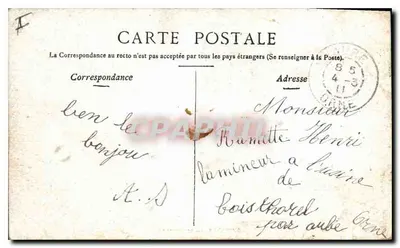 I
CARTE POSTALE
La Correspondance au recto n'est pas acceptée par tous les pays étrangers (Se renseigner à la Poste).
Correspondance
Adresse
8 5
4 - 3
11
ORNE
ben le
bonjou
A. D
Monsieur
Ramette Henri
lamineur a l'usine
de
boisthorel
par aube Orne